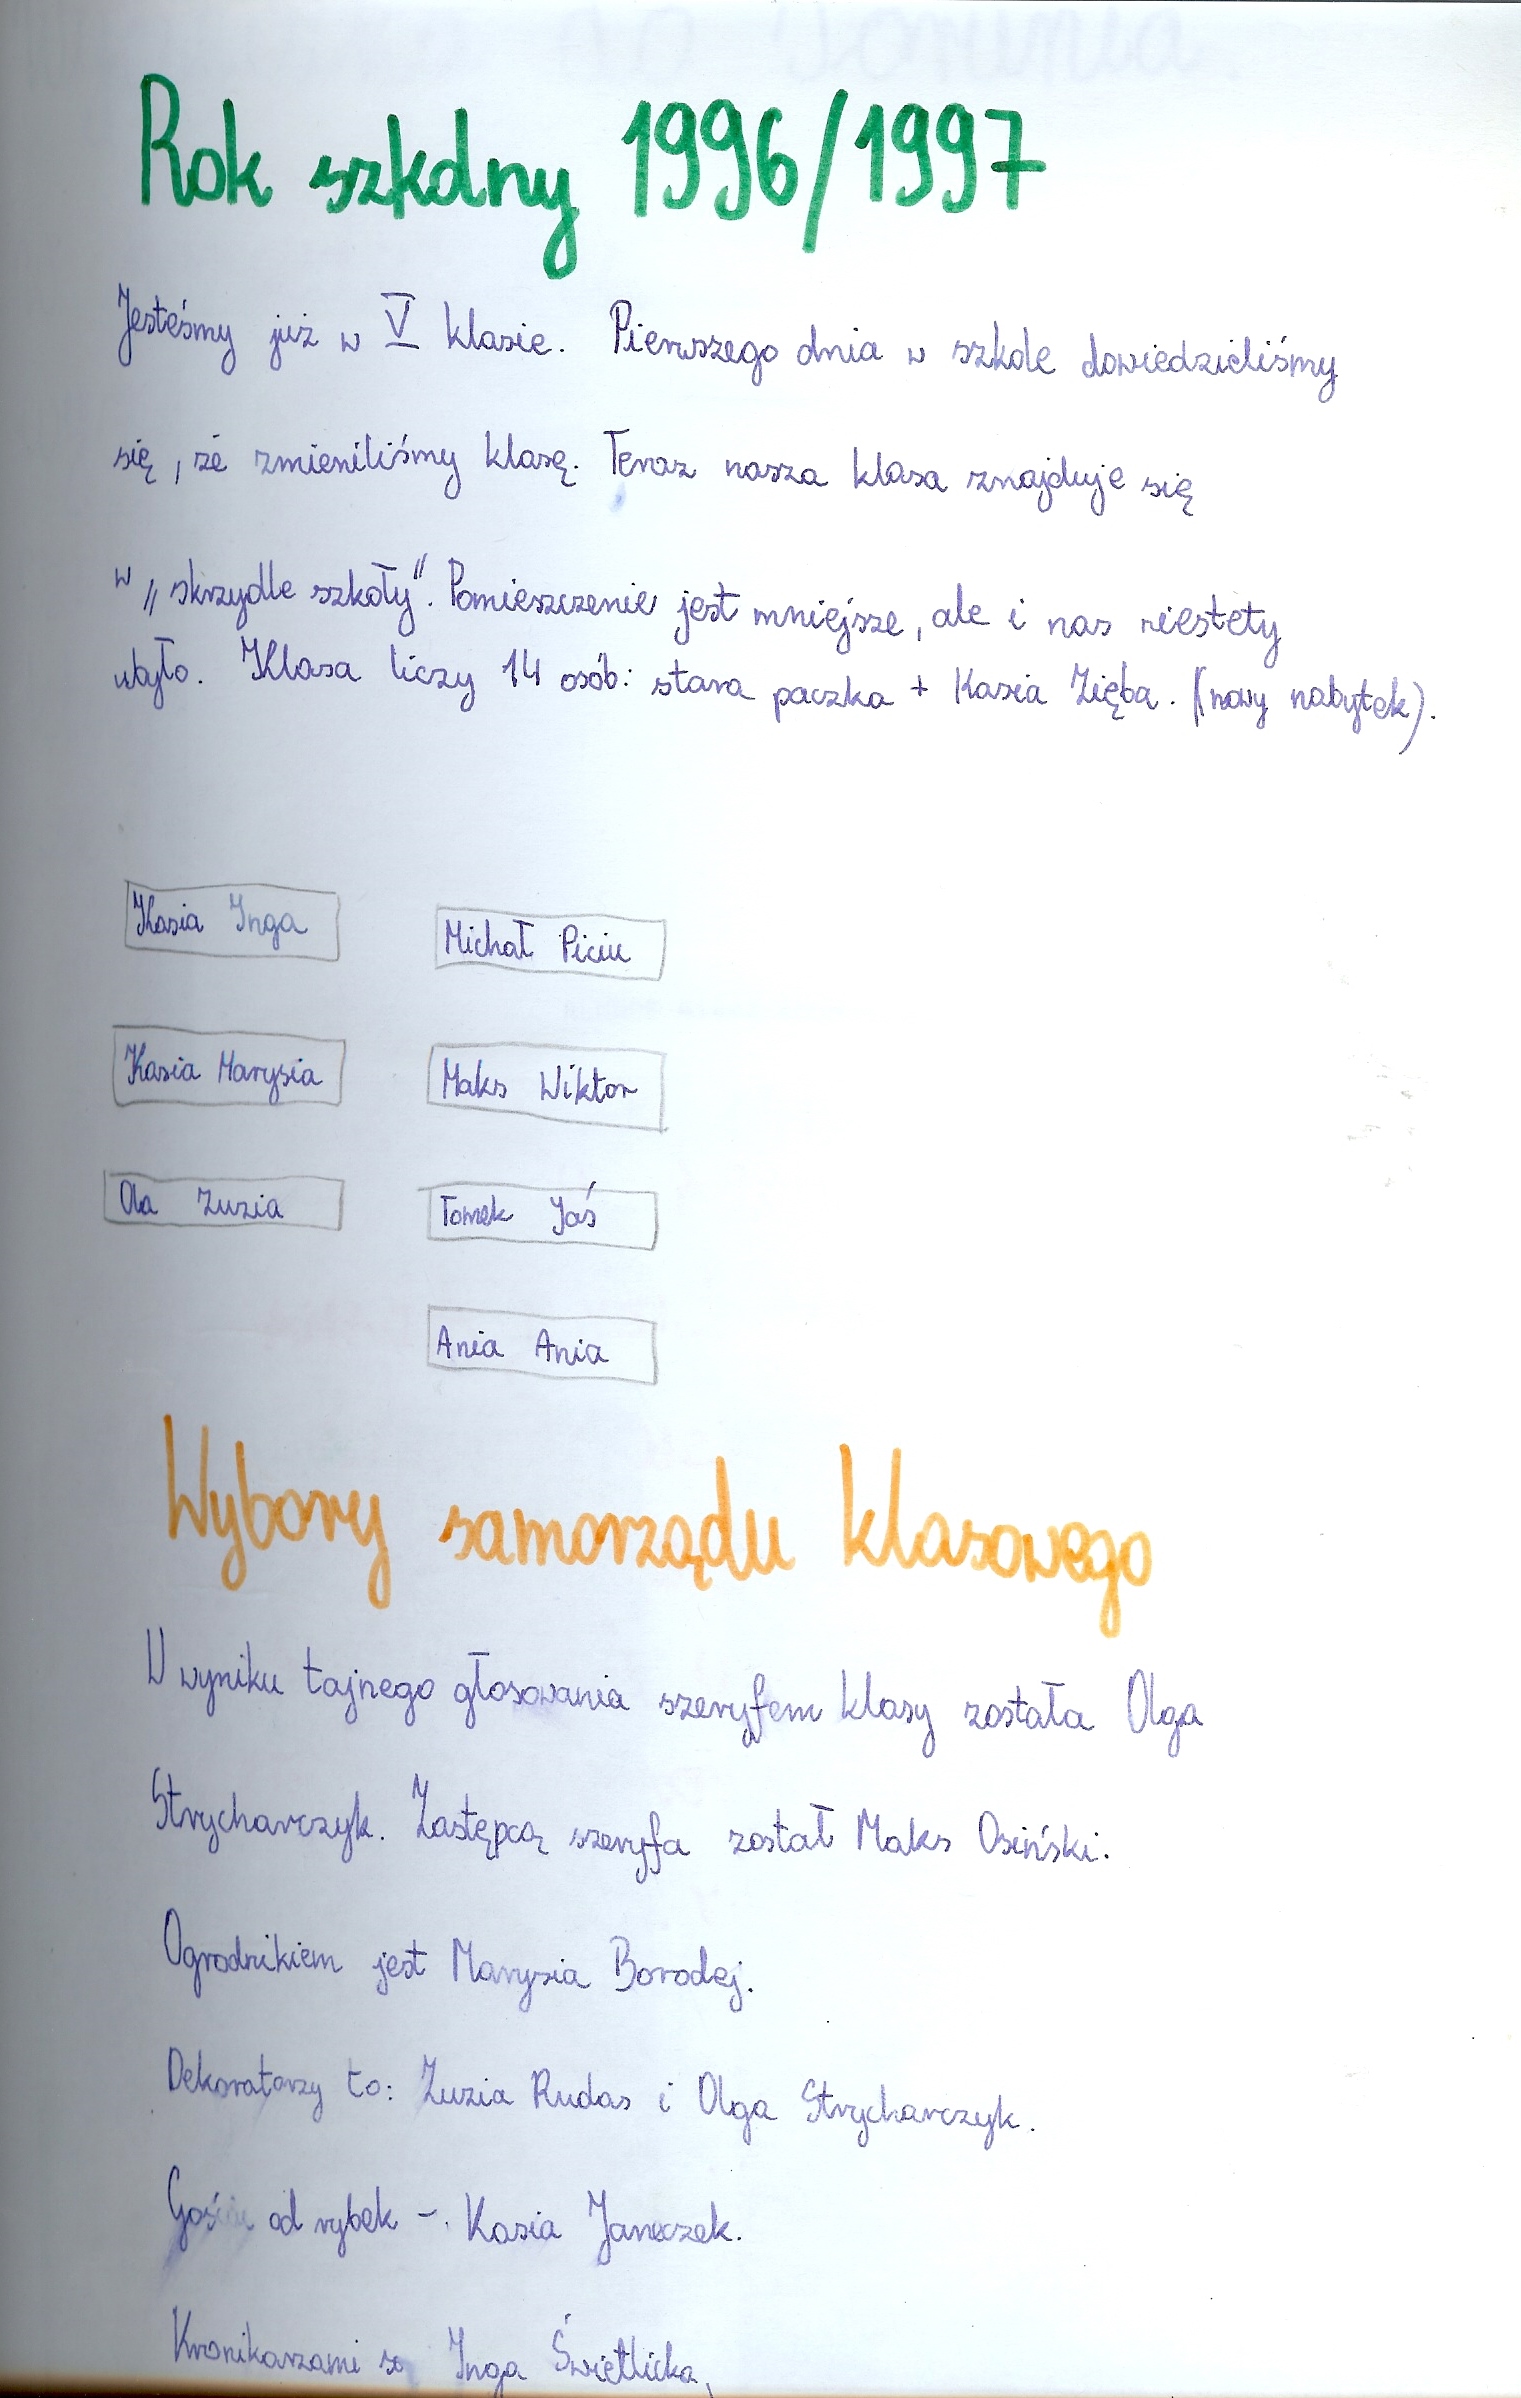 Rok szkolny 1996/1997
Jesteśmy już w V klasie. Pierwszego dnia w szkole dowiedzieliśmy
się, że zmieniliśmy klasę. Teraz nasza klasa znajduje się
w „skrzydle szkoły". Pomieszczenie jest mniejsze, ale i nas niestety
ubyło. Klasa liczy 14 osób: stara paczka + Kasia Zięba. (nowy nabytek).
Kasia Inga Michał Piciu
Kasia Marysia Maks Wiktor
Ola Zuzia Tomek Jaś
Ania Ania
Wybory samorządu klasowego
W wyniku tajnego głosowania szeryfem klasy została Olga
Strycharczyk. Zastępcą szeryfa został Maks Osiński.
Ogrodnikiem jest Marysia Borodej.
Dekoratorzy to: Zuzia Rudas i Olga Strycharczyk.
od rybek - Kasia Janeczek.
Kronikarzami są Inga Świetlicka,